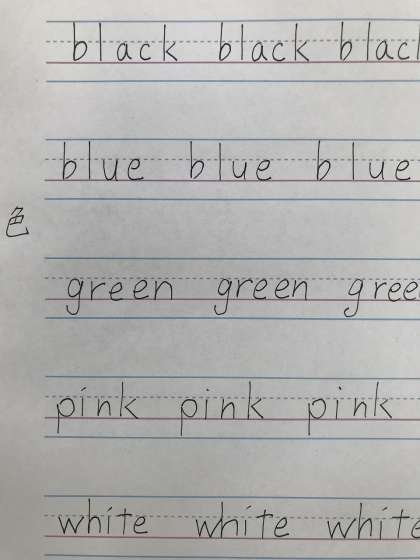 black black blac
blue blue blue
色
green green gree
pink pink pink
white white white